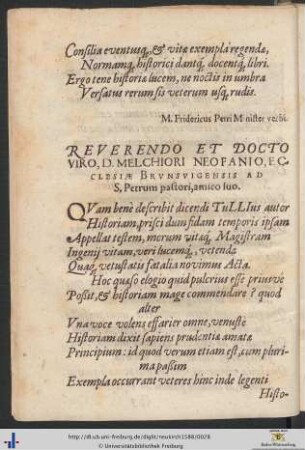 Consilia eventusq́, & vitæ exempla regendæ,
Normamq́, historici dantq́, docentq́, libri.
Ergo tene historiæ lucem, ne noctis in umbra
Versatus rerum sis veterum usq́, rudis.
M. Fridericus Petri Minister verbi.
REVERENDO ET DOCTO
VIRO, D. MELCHIORI NEOFANIO, EC-
CLESIÆ BRVNSVIGENSIS AD
S. Petrum pastori, amico suo.
QVam benè describit dicendi TuLLIus autor
Historiam, prisci dum fidam temporis ipsam
Appellat testem, morum vitaq́, Magistram
Ingenij vitam, veri lucemq́,
Quaq́, vetustatis fatalia novimus Acta.
Hoc quæso elogio quid pulcrius esse priusve
Possit, & historiam mage commendare? quod
alter
Vna voce volens effarier omne, venustè
Historiam dixit sapiens prudentiæ amatæ
Principium: id quod verum etiam est, cum pluri-
ma passim
Exempla occurrant veteres hinc inde legenti
Histo-
http://dl.ub.uni-freiburg.de/diglit/neukirch1588/0028
© Universitätsbibliothek Freiburg
Baden-Württemberg